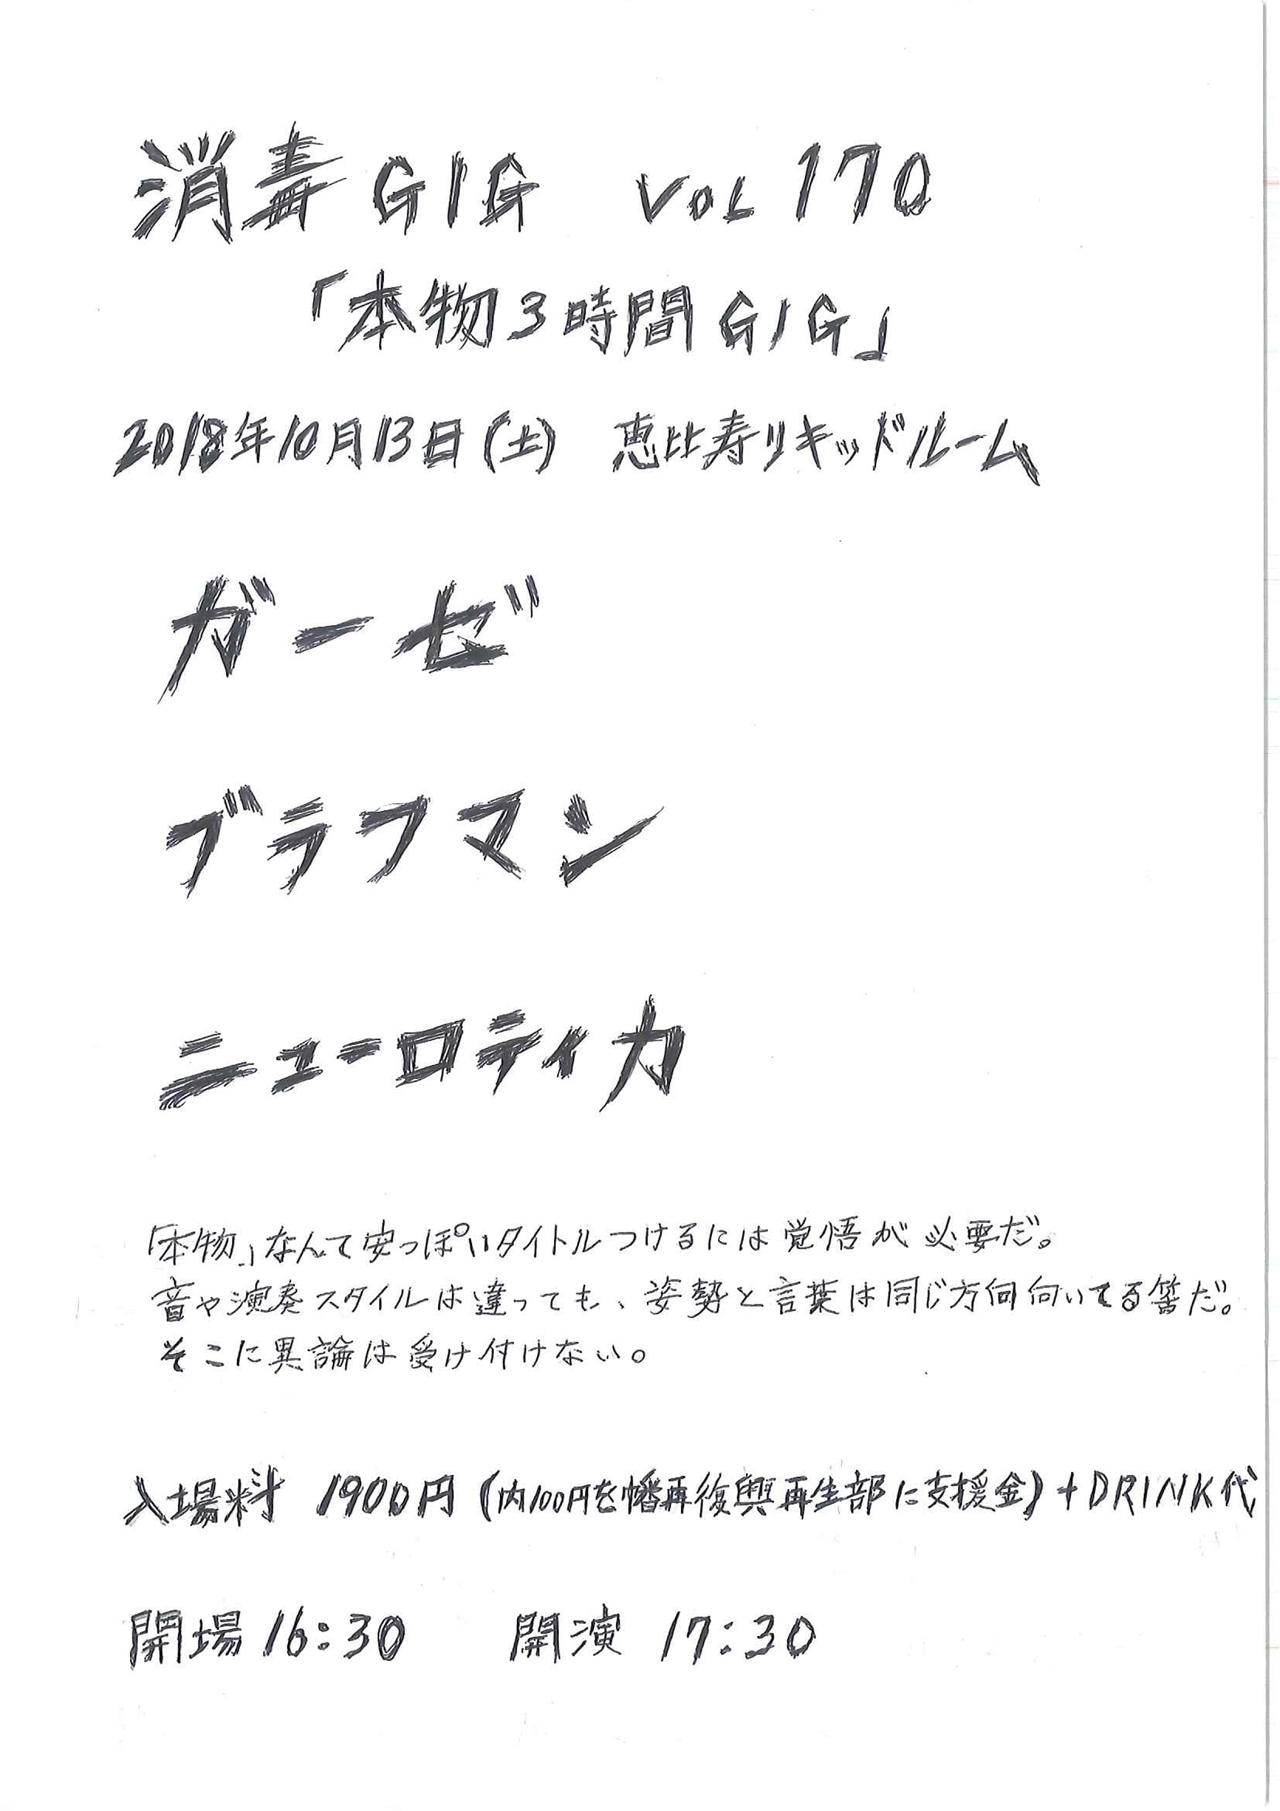 消毒GIG VOL 170
「本物3時間GIG」
2018年10月13日(土) 恵比寿リキッドルーム
ガーゼ
ブラフマン
ニューロティカ
「本物」なんて安っぽいタイトルつけるには覚悟が必要だ。
音や演奏スタイルは違っても、姿勢と言葉は同じ方向向いてる筈だ。
そこに異論は受け付けない。
入場料 1900円(内100円を幡再復興再生部に支援金)+DRINK代
開場16:30 開演 17:30